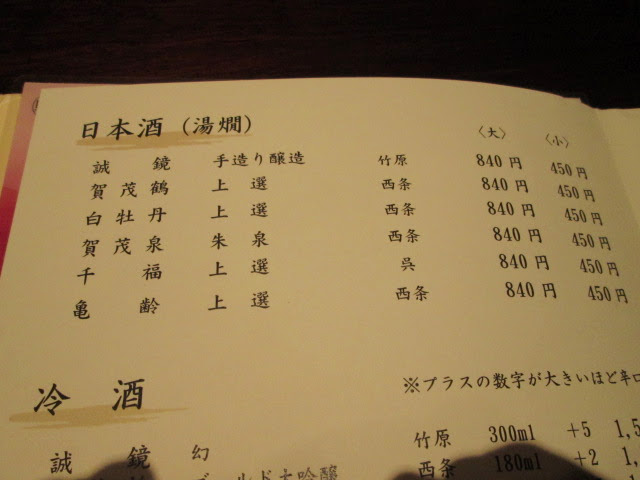 日本酒（湯燗）
〈大〉 〈小〉
誠鏡 手造り醸造 竹原 840円 450円
賀茂鶴 上選 西条 840円 450円
白牡丹 上選 西条 840円 450円
賀茂泉 朱泉 西条 840円 450円
千福 上選 呉 840円 450円
亀齢 上選 西条 840円 450円
冷酒
※プラスの数字が大きいほど辛口
誠鏡 幻 竹原 300ml +5 1,5
ゴールド大吟醸 西条 180ml +2 1,